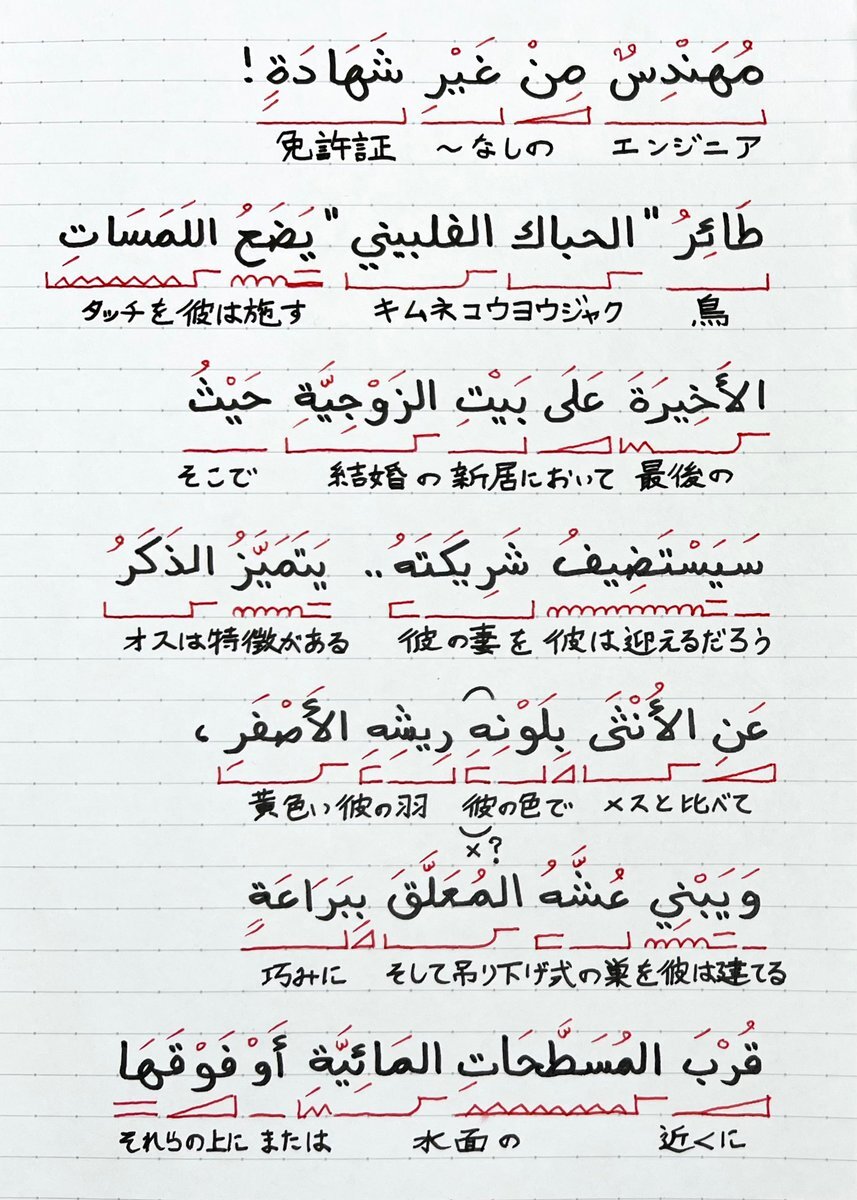 مُهَنْدِسٌ مِنْ غَيْرِ شَهَادَةٍ!
エンジニア ～なしの 免許証
طَائِرُ "الحباك الفلبيني" يَضَعُ اللَمَسَاتِ
鳥 キムネコウヨウジャク タッチを彼は施す
الأَخِيرَةَ عَلَى بَيْتِ الزَوْجِيَّةِ حَيْثُ
最後の 結婚の新居において そこで
سَيَسْتَضِيفُ شَرِيكَتَهُ.. يَتَمَيَّزُ الذَكَرُ
彼の妻を彼は迎えるだろう オスは特徴がある
عَنِ الأُنْثَى بِلَوْنِهِ رِيشِهِ الأَصْفَرِ،
メスと比べて 彼の色で 黄色い彼の羽
×?
وَيَبْنِي عُشَّهُ المُعَلَّقَ بِبَرَاعَةٍ
そして吊り下げ式の巣を彼は建てる 巧みに
قُرْبَ المُسَطَّحَاتِ المَائِيَّةِ أَوْ فَوْقَهَا
近くに 水面の または それらの上に